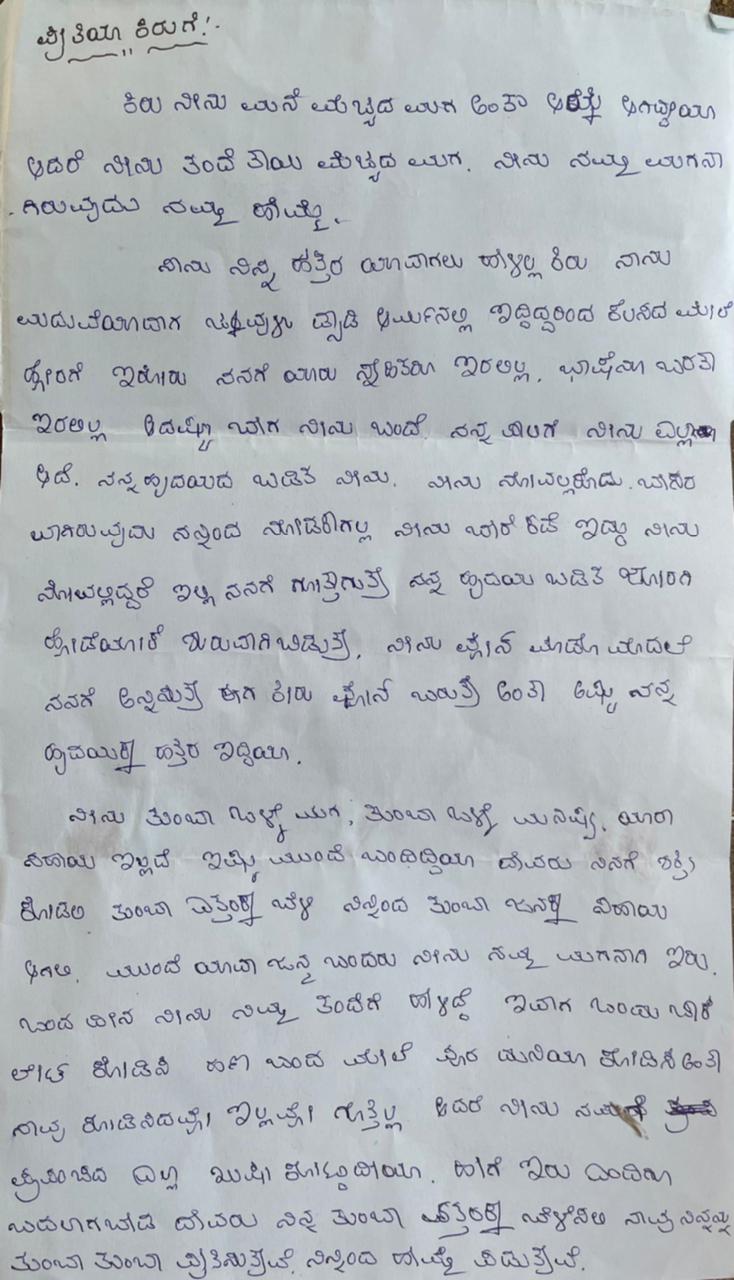 ಪ್ರೀತಿಯಾ ಕಿರುಗೆ!
ಕಿರು ನೀನು ಮನೆ ಮೆಚ್ಚಿದ ಮಗ ಅಂತಾ ಆಗಿದ್ದೀಯಾ
ಆದರೆ ನೀನು ತಂದೆ ತಾಯಿ ಮೆಚ್ಚಿದ ಮಗ. ನೀನು ನಮ್ಮ ಮಗನಾ
ಗಿರುವುದು ನಮ್ಮ ಹೆಮ್ಮೆ.
ನಾನು ನಿನ್ನ ಹತ್ತಿರ ಯಾವಾಗಲು ಹೇಳಿಲ್ಲ ಕಿರು ನಾನು
ಮದುವೆಯಾದಾಗ ಡ್ಯಾಡಿ ಆರ್ಮಿನಲ್ಲಿ ಇದ್ದಿದ್ದರಿಂದ ಕೆಲಸದ ಮೇಲೆ
ಹೊರಗೆ ಇರೋರು ನನಗೆ ಯಾರು ಸ್ನೇಹಿತರು ಇರಲಿಲ್ಲ. ಭಾಷೆನೂ ಬರತಾ
ಇರಲಿಲ್ಲ ನೀನು ಬಂದೆ. ನನ್ನ ಪಾಲಿಗೆ ನೀನು ಎಲ್ಲಾ
ಆದೆ. ನನ್ನ ಹೃದಯದ ಬಡಿತ ನೀನು. ನೀನು ನೋವಲ್ಲಿರೊದು. ಬೇಸರ
ವಾಗಿರುವುದು ನನ್ನಿಂದ ನೋಡಕಾಗಲ್ಲ ನೀನು ಬೇರೆ ಕಡೆ ಇದ್ದು ನೀನು
ನೋವಲ್ಲಿದ್ದರೆ ಇಲ್ಲಿ ನನಗೆ ಗೊತ್ತಾಗುತ್ತೆ ನನ್ನ ಹೃದಯ ಬಡಿತ ಜೋರಾಗಿ
ಹೊಡೆಯೋಕೆ ಶುರುವಾಗಿಬಿಡುತ್ತೆ. ನೀನು ಫೋನ್ ಮಾಡೊ ಮೊದಲೆ
ನನಗೆ ಅನ್ನಿಸುತ್ತೆ ಈಗ ಕಿರು ಫೋನ್ ಬರುತ್ತೆ ಅಂತಾ ಅಷ್ಟು ನನ್ನ
ಹೃದಯಕ್ಕೆ ಹತ್ತಿರ ಇದ್ದಿಯಾ.
ನೀನು ತುಂಬಾ ಒಳ್ಳೆ ಮಗ, ತುಂಬಾ ಒಳ್ಳೆ ಮನಿಷ್ಯ. ಯಾರಾ
ಸಹಾಯ ಇಲ್ಲದೆ ಇಷ್ಟು ಮುಂದೆ ಬಂದಿದ್ದಿಯಾ ದೇವರು ನಿನಗೆ ಶಕ್ತಿ
ಕೊಡಲಿ ತುಂಬಾ ಎತ್ತರಕ್ಕೆ ಬೆಳಿ ನಿನ್ನಿಂದ ತುಂಬಾ ಜನಕ್ಕೆ ಸಹಾಯ
ಆಗಲಿ. ಮುಂದೆ ಯಾವ ಜನ್ಮ ಬಂದರು ನೀನು ನಮ್ಮ ಮಗನಾಗಿ ಇರು.
ಒಂದ ದಿನ ನೀನು ನಿಮ್ಮ ತಂದೆಗೆ ಹೇಳಿದ್ದೆ ಇವಾಗ ಒಂದು ಚಾಕೆ
ಲೇಟ್ ಕೊಡಿಸಿ ಹಣ ಬಂದ ಮೇಲೆ ಪೂರ ದುನಿಯಾ ಕೊಡಿಸಿ ಅಂತಾ
ನಾವು ಕೊಡಿಸಿದವೊ ಇಲ್ಲವೊ ಗೊತ್ತಿಲ್ಲ ಆದರೆ ನೀನು ನಮಗೆ
ಪ್ರಪಂಚದ ಎಲ್ಲಾ ಖುಷಿ ಕೊಟ್ಟಿದೀಯಾ. ಹಾಗೆ ಇರು ಎಂದಿಗೂ
ಬದಲಾಗಬೇಡಿ ದೇವರು ನಿನ್ನ ತುಂಬಾ ಎತ್ತರಕ್ಕೆ ಬೆಳೆಸಲಿ ನಾವು ನಿನ್ನನ್ನು
ತುಂಬಾ ತುಂಬಾ ಪ್ರೀತಿಸುತ್ತೇವೆ. ನಿನ್ನಿಂದ ಹೆಮ್ಮೆ ಪಡುತ್ತೇವೆ.